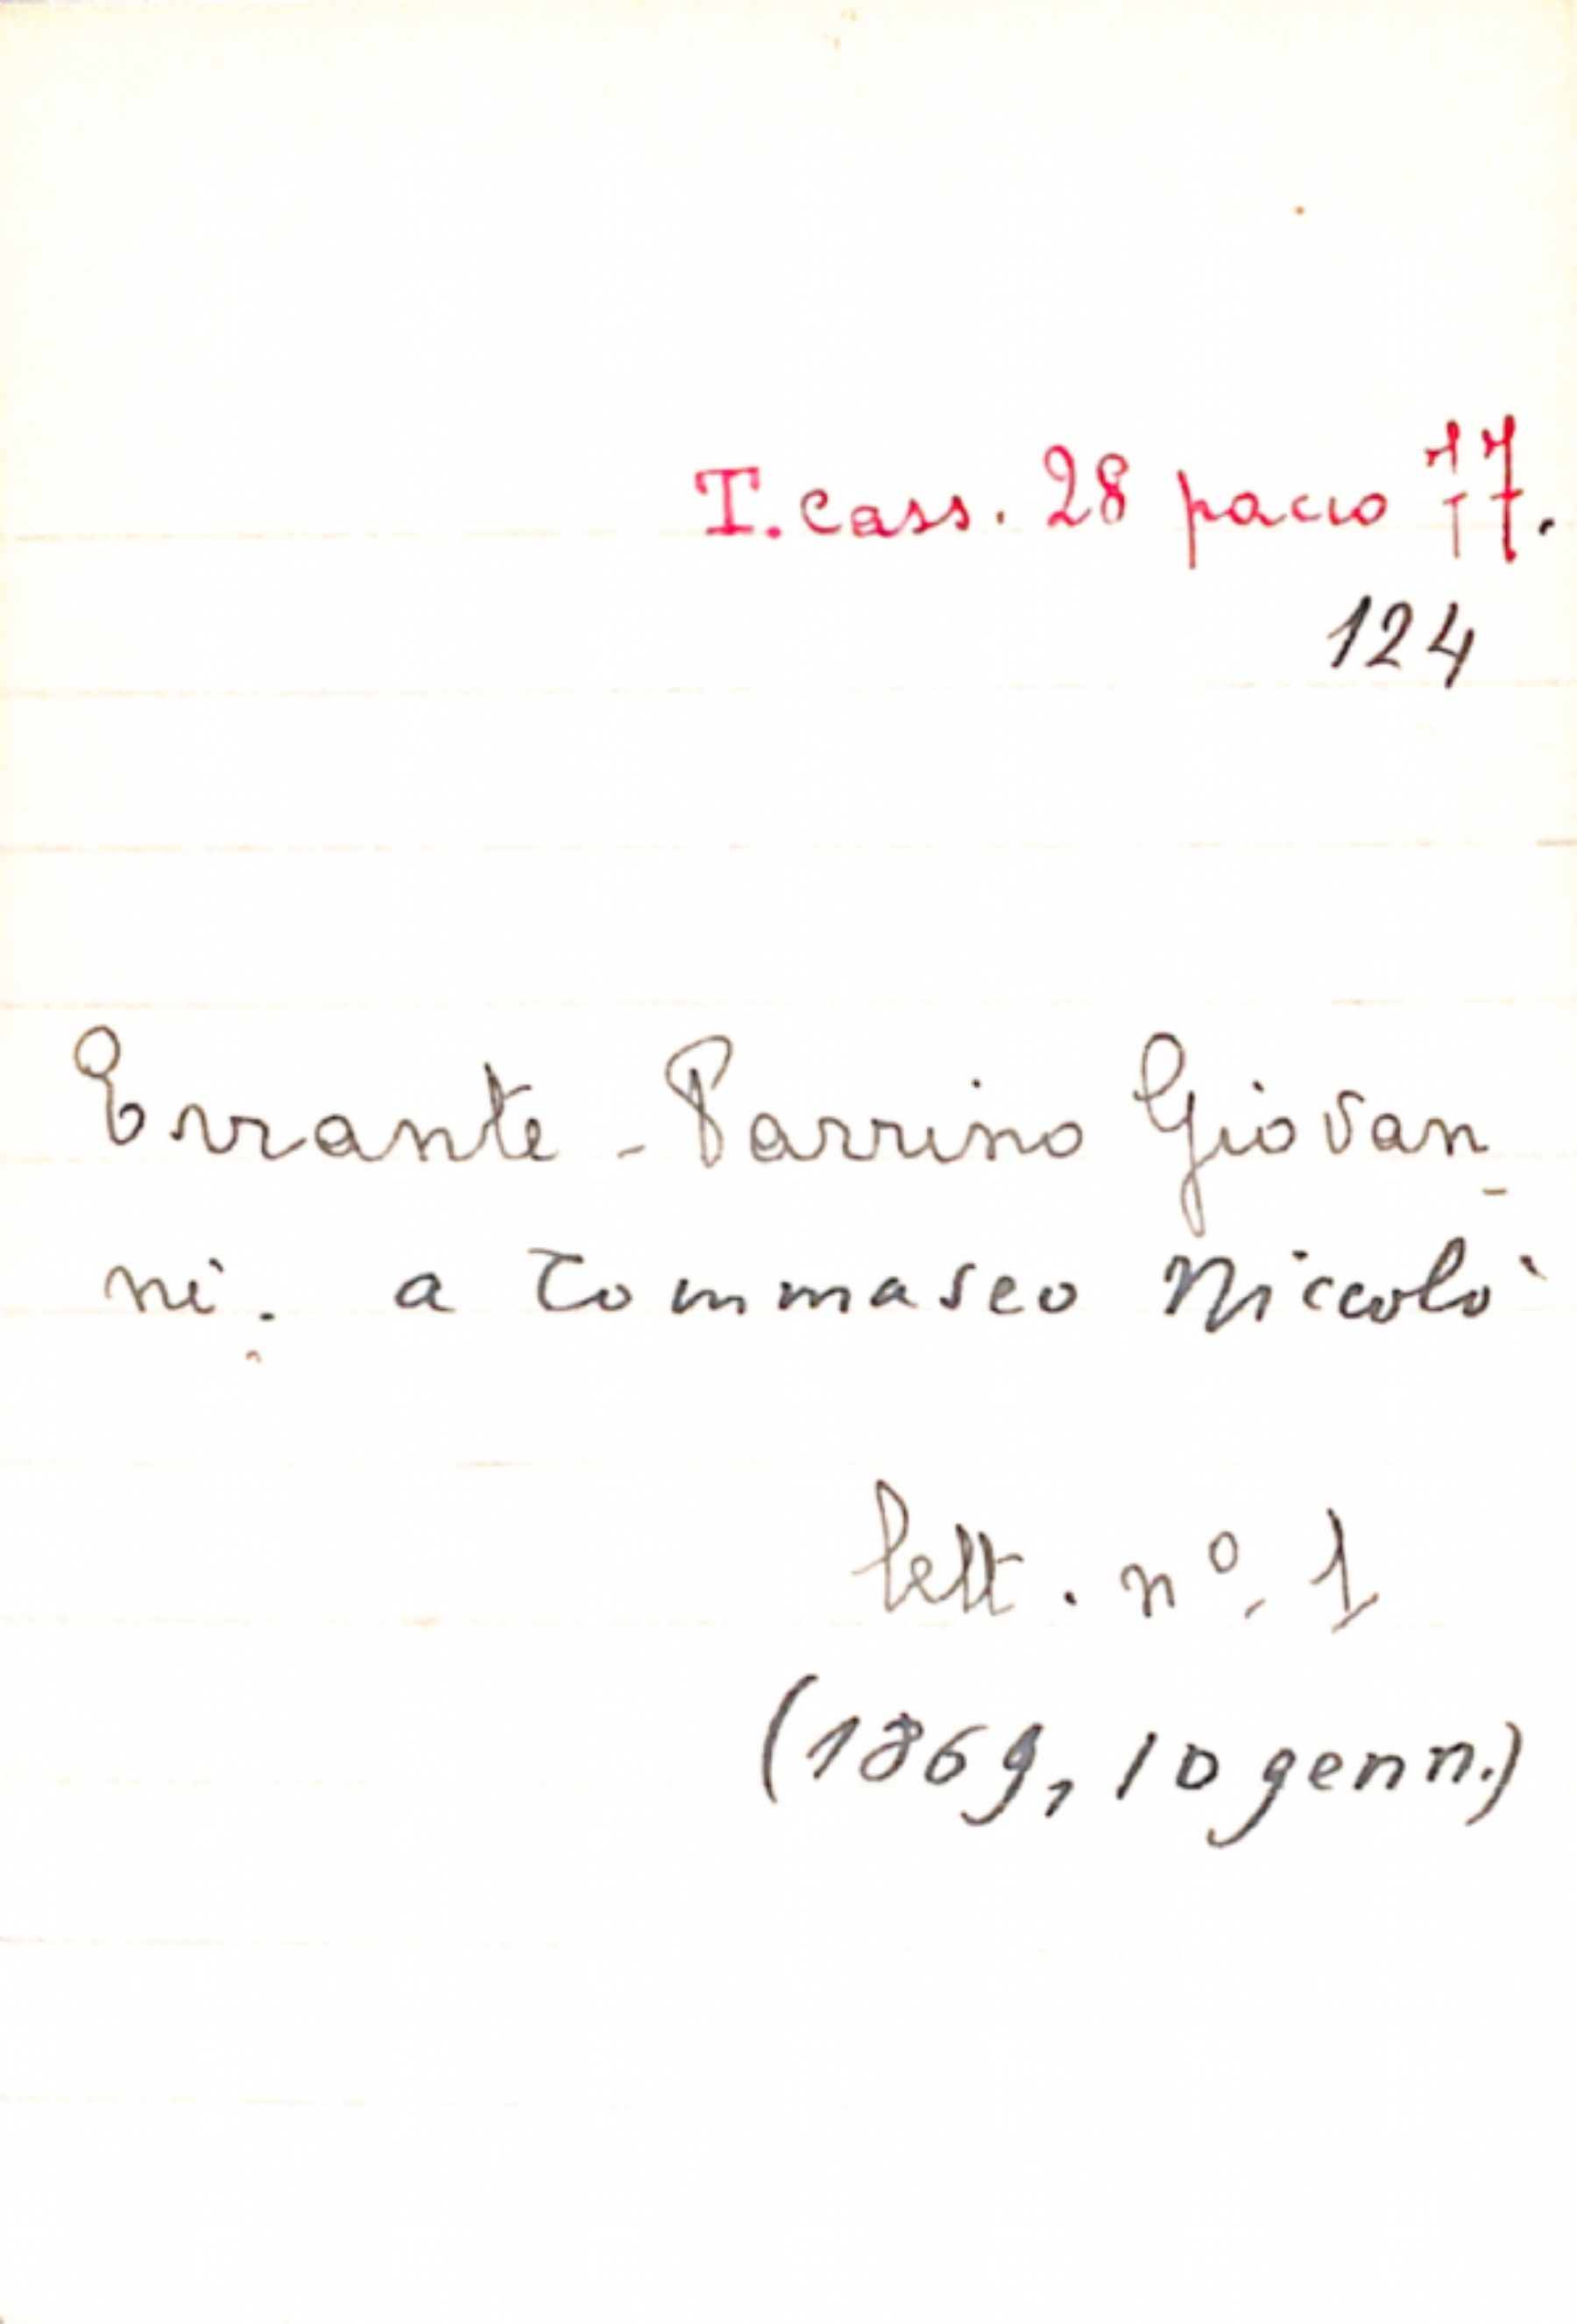 T. Cass. 28 pacco 77.
124
Errante - Parrino Giovan-
ni. a Tommaseo Niccolò
lett. nº. 1
(1869, 10 genn.)